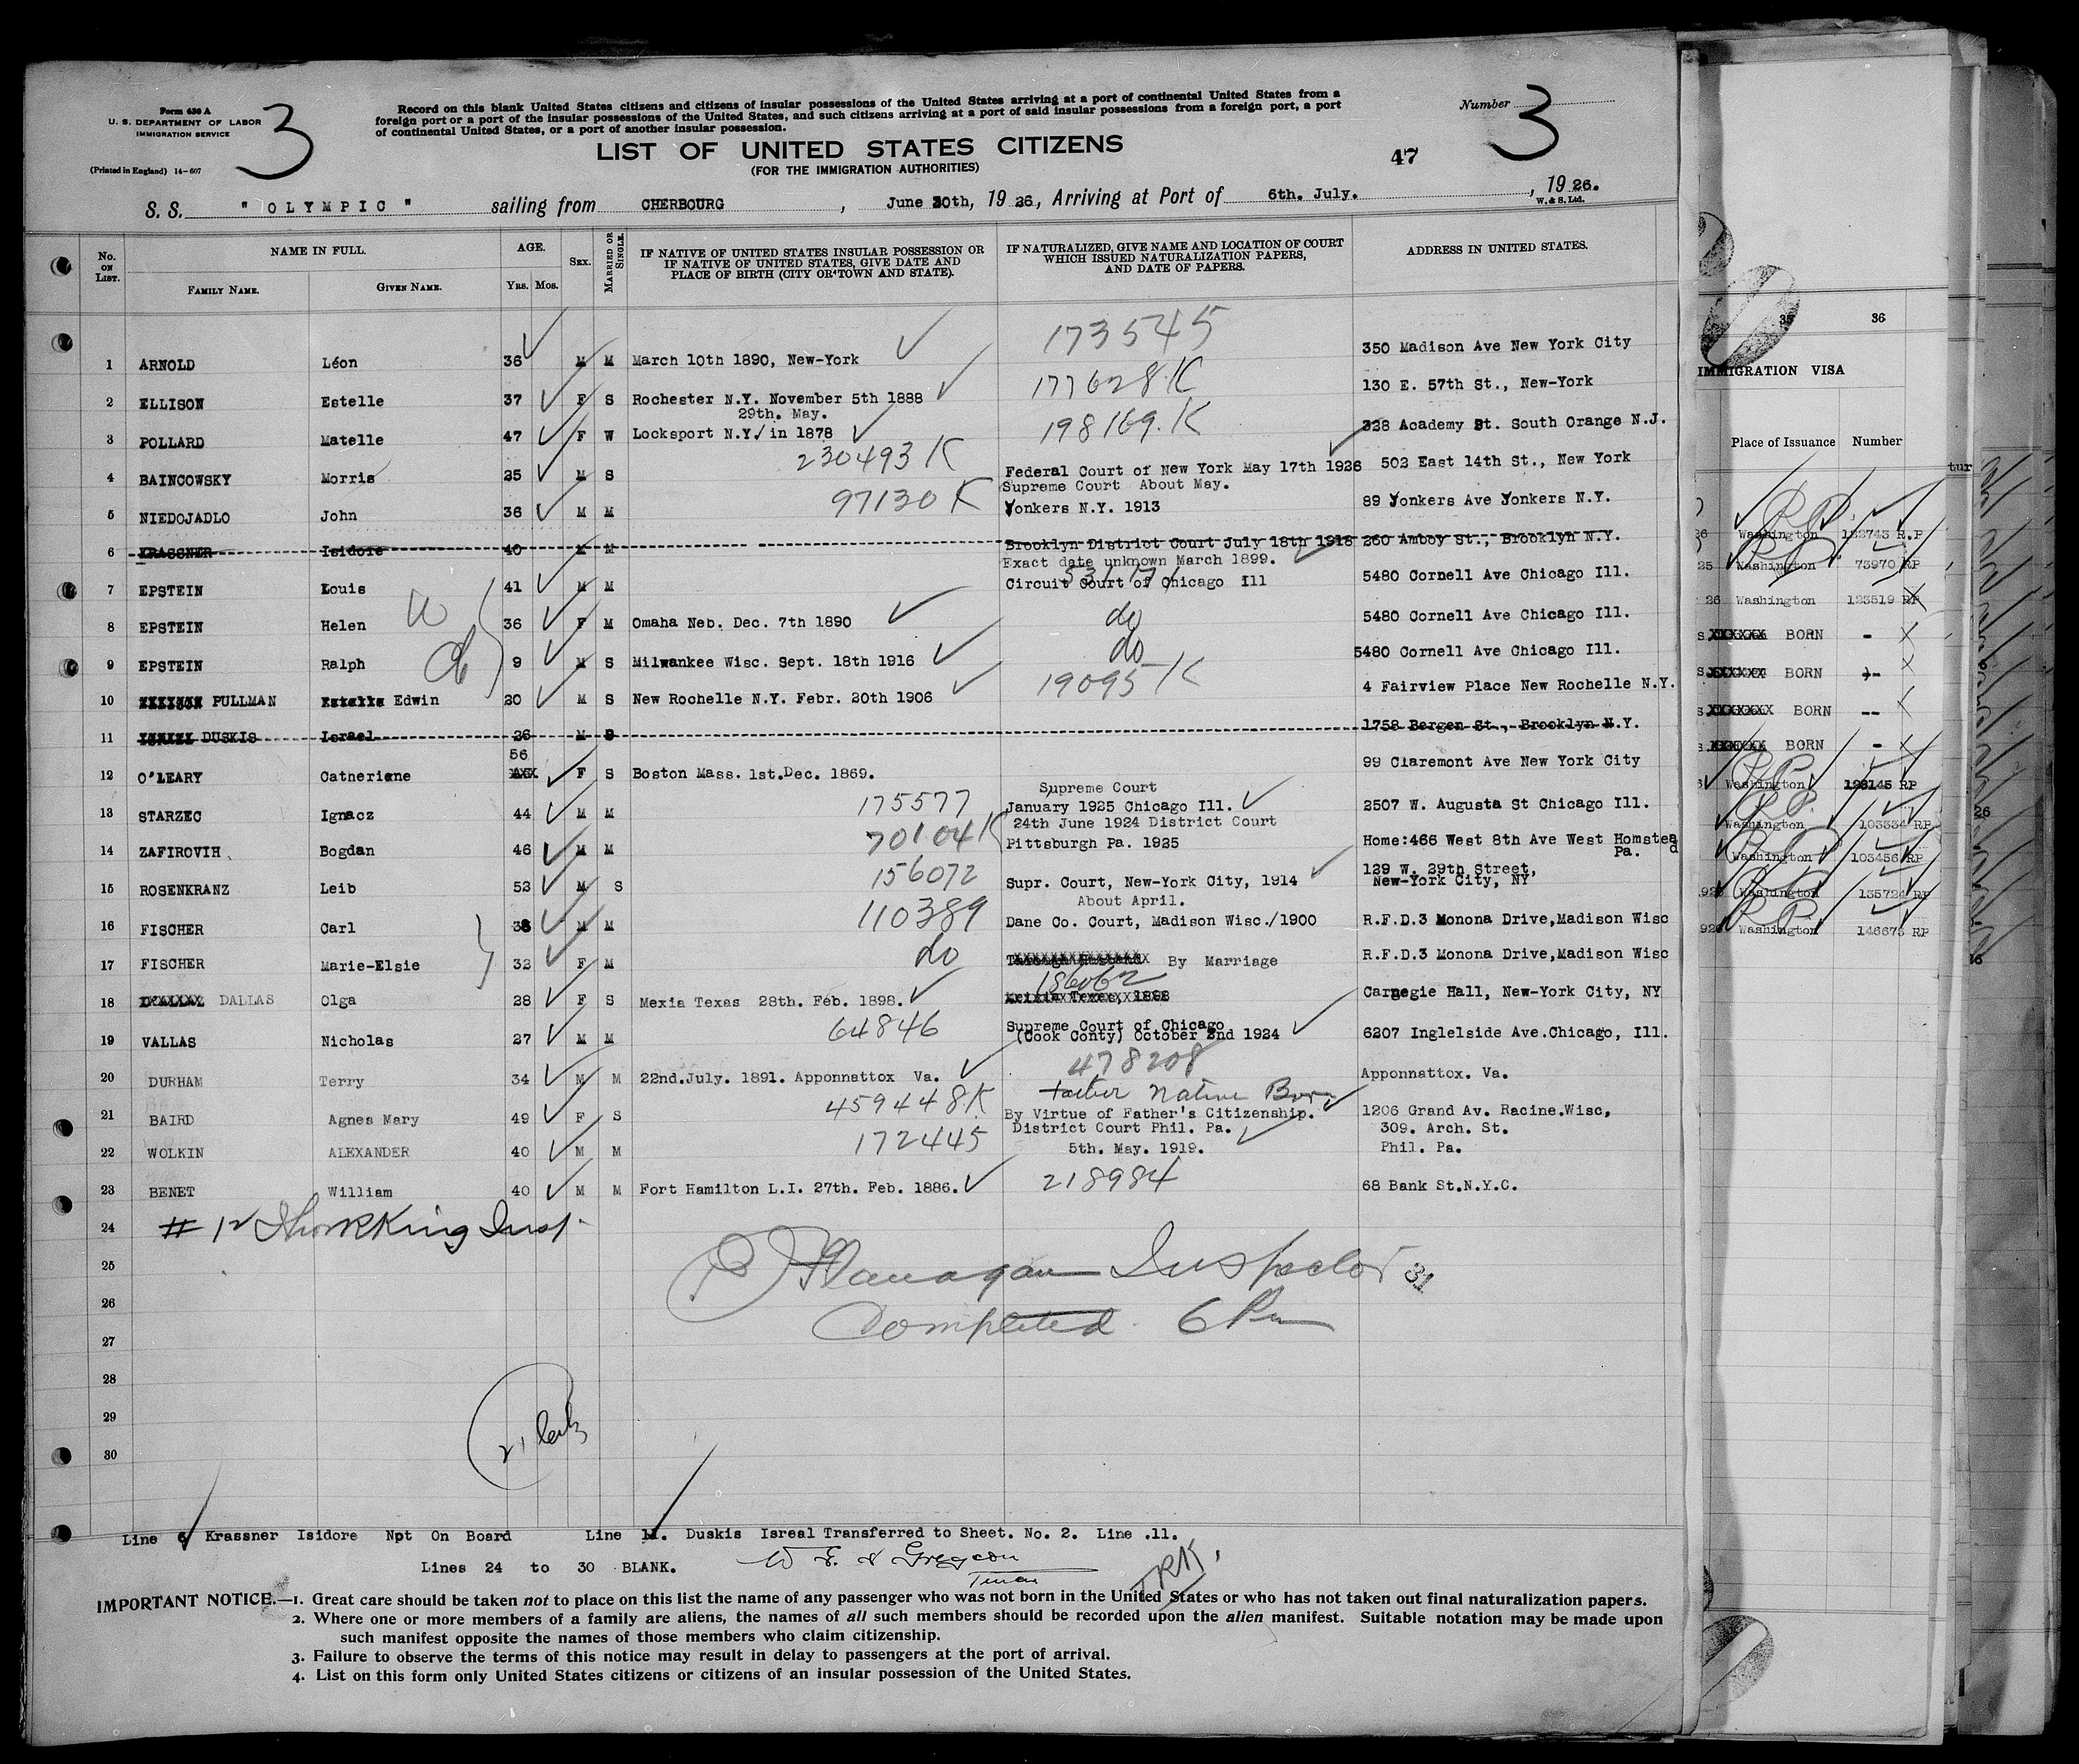 Form 630 A
U. S. DEPARTMENT OF LABOR
IMMIGRATION SERVICE
(Printed in England) 14-607
3
Record on this blank United States citizens and citizens of insular possessions of the United States arriving at a port of continental United States from a
foreign port or a port of the insular possessions of the United States, and such citizens arriving at a port of said insular possessions from a foreign port, a port
of continental United States, or a port of another insular possession.
Number 3
LIST OF UNITED STATES CITIZENS
(FOR THE IMMIGRATION AUTHORITIES)
47
S. S. " OLYMPIC " sailing from CHERBOURG , June 30th, 19 26, Arriving at Port of 6th. July. , 19 26.
W. & S. Ltd.
No. ON LIST. NAME IN FULL. AGE. SEX. MARRIED OR SINGLE. IF NATIVE OF UNITED STATES INSULAR POSSESSION OR IF NATIVE OF UNITED STATES, GIVE DATE AND PLACE OF BIRTH (CITY OR TOWN AND STATE). IF NATURALIZED, GIVE NAME AND LOCATION OF COURT WHICH ISSUED NATURALIZATION PAPERS, AND DATE OF PAPERS. ADDRESS IN UNITED STATES.
FAMILY NAME. GIVEN NAME. YRS. MOS.
1 ARNOLD Léon 36 M M March 10th 1890, New-York 173545 350 Madison Ave New York City
2 ELLISON Estelle 37 F S Rochester N.Y. November 5th 1888 177628.K 130 E. 57th St., New-York
29th. May.
3 POLLARD Matelle 47 F W Locksport N.Y./in 1878 198169.K 328 Academy St. South Orange N.J.
230493 K
4 BAINCOWSKY Morris 25 M S Federal Court of New York May 17th 1926 502 East 14th St., New York
Supreme Court About May.
5 NIEDOJADLO John 36 M M 97130 K Yonkers N.Y. 1913 89 Yonkers Ave Yonkers N.Y.
6 KRASSNER Isidore 40 M M Brooklyn District Court July 18th 1918 260 Amboy St., Brooklyn N.Y.
Exact date unknown March 1899.
7 EPSTEIN Louis 41 M M Circuit Court of Chicago Ill 5480 Cornell Ave Chicago Ill.
8 EPSTEIN Helen 36 F M Omaha Neb. Dec. 7th 1890 do 5480 Cornell Ave Chicago Ill.
9 EPSTEIN Ralph 9 M S Milwankee Wisc. Sept. 18th 1916 do 5480 Cornell Ave Chicago Ill.
10 PULLMAN Edwin 20 M S New Rochelle N.Y. Febr. 20th 1906 19095 K 4 Fairview Place New Rochelle N.Y.
11 DUSKIS Israel 26 M S 1758 Bergen St., Brooklyn N.Y.
56
12 O'LEARY Catneriene F S Boston Mass. 1st.Dec. 1869. 99 Claremont Ave New York City
Supreme Court
13 STARZEC Ignacz 44 M M 175577 January 1925 Chicago Ill. 2507 W. Augusta St Chicago Ill.
24th June 1924 District Court
14 ZAFIROVIH Bogdan 46 M M 70104 K Pittsburgh Pa. 1925 Home:466 West 8th Ave West Homstead
Pa.
15 ROSENKRANZ Leib 52 M S 156072 Supr. Court, New-York City, 1914 129 W. 29th Street,
New-York City, NY
About April.
16 FISCHER Carl 38 M M 110389 Dane Co. Court, Madison Wisc./1900 R.F.D.3 Monona Drive,Madison Wisc
17 FISCHER Marie-Elsie 32 F M do By Marriage R.F.D.3 Monona Drive,Madison Wisc
186062
18 DALLAS Olga 28 F S Mexia Texas 28th. Feb. 1898. Mexia Texas 1898 Carnegie Hall, New-York City, NY
Supreme Court of Chicago
19 VALLAS Nicholas 27 M M 64846 (Cook Conty) October 2nd 1924 6207 Inglelside Ave.Chicago, Ill.
20 DURHAM Terry 34 M M 22nd.July. 1891. Apponnattox Va. 478208 Apponnattox. Va.
father Native Born
21 BAIRD Agnes Mary 49 F S 459448.K By Virtue of Father's Citizenship. 1206 Grand Av. Racine.Wisc,
District Court Phil. Pa. 309. Arch. St.
22 WOLKIN ALEXANDER 40 M M 172445 5th. May. 1919. Phil. Pa.
23 BENET William 40 M M Fort Hamilton L.I. 27th. Feb. 1886. 218984 68 Bank St.N.Y.C.
24 # 12 King Insp.
25 Flanagan Inspector 31
26 Completed 6 Pm
27
28
29
30
Line 6 Krassner Isidore Npt On Board Line 11. Duskis Isreal Transferred to Sheet. No. 2. Line .11.
Lines 24 to 30 BLANK.
IMPORTANT NOTICE.—1. Great care should be taken not to place on this list the name of any passenger who was not born in the United States or who has not taken out final naturalization papers.
2. Where one or more members of a family are aliens, the names of all such members should be recorded upon the alien manifest. Suitable notation may be made upon
such manifest opposite the names of those members who claim citizenship.
3. Failure to observe the terms of this notice may result in delay to passengers at the port of arrival.
4. List on this form only United States citizens or citizens of an insular possession of the United States.
35 36
IMMIGRATION VISA
Place of Issuance Number
Washington 152743 R.P
Washington 73970 RP
26 Washington 123519 RP
BORN -
BORN --
BORN --
BORN -
Washington 198145 RP
Washington 103334 RP
Washington 103456 RP
Washington 135724 RP
Washington 146673 RP